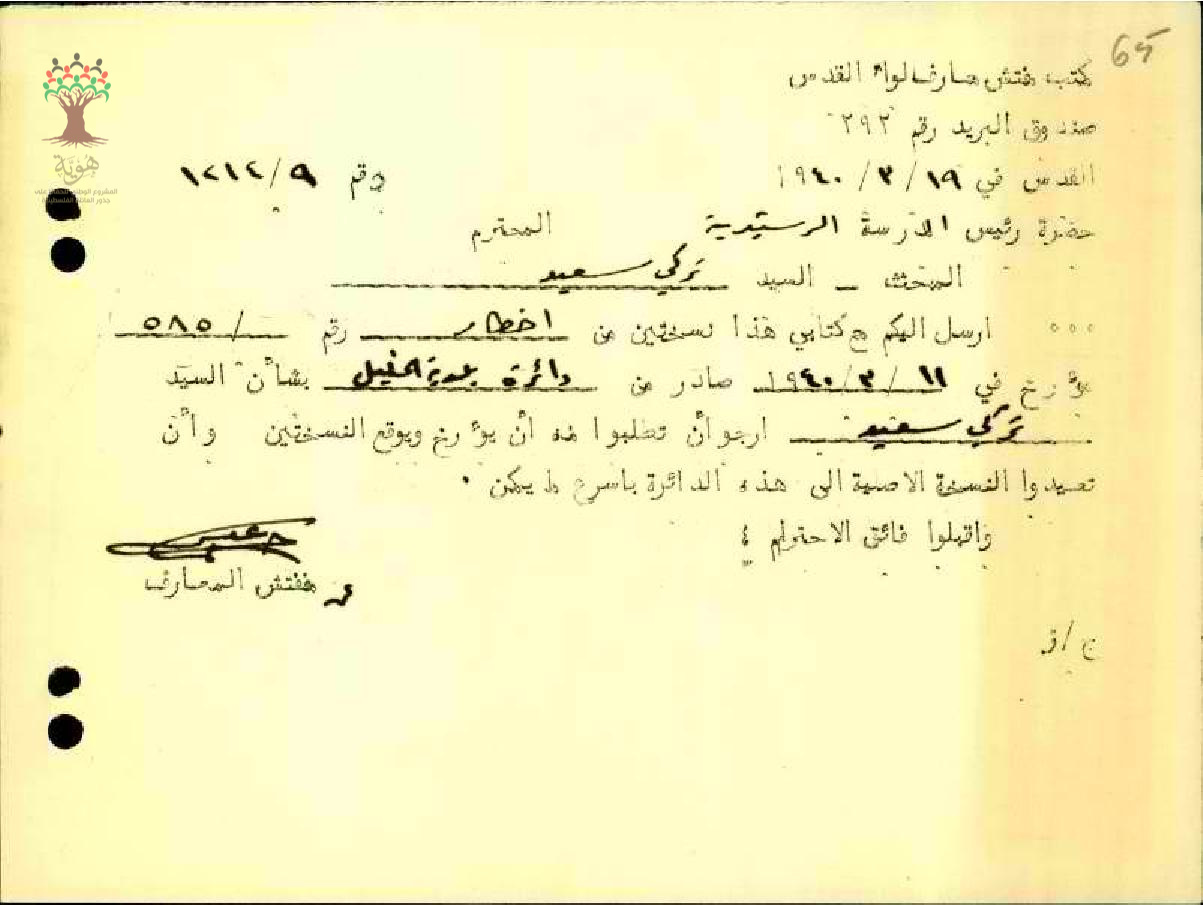 65
مكتب مفتش معارف لواء القدس
صندوق البريد رقم ٢٩٢
القدس في ١٩ / ٣ / ١٩٤٠ رقم ١٢١٤/٩
حضرة رئيس المدرسة الرشيدية المحترم
المبحث ــ السيد تركي سعيد
ارسل اليكم مع كتابي هذا نسختين من اخطار رقم / ٥٨٥
مؤرخ في ١١ / ٣ / ١٩٤٠ صادر من دائرة بلدية الخليل بشأن السيد
تركي سعيد ارجو أن تطلبوا منه أن يؤرخ ويوقع النسختين وأن
تعيدوا النسخة الاصلية الى هذه الدائرة باسرع ما يمكن ٠
واقبلوا فائق الاحترام ؛
مفتش المعارف
هوية